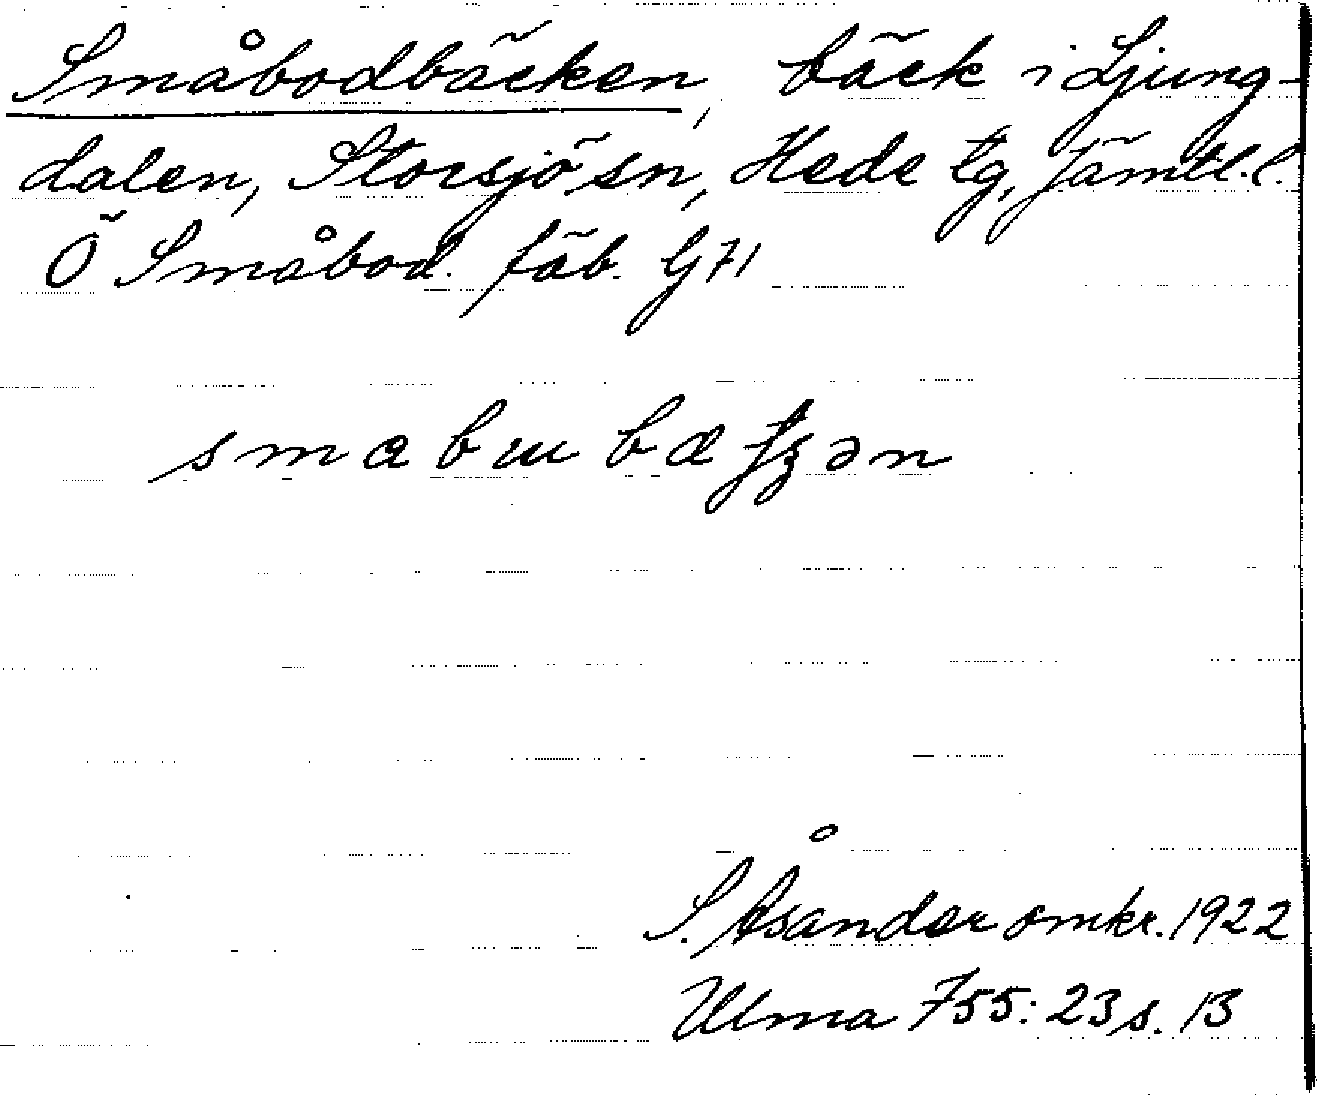 Småbodbäcken, bäck i Ljung-
dalen, Storsjö sn, Hede tg, Jämtl. l.
Ö Småbod. fäb. G71
smabɯbæƭʒən
S. Åsander omkr. 1922
Ulma 755:23 s. 13